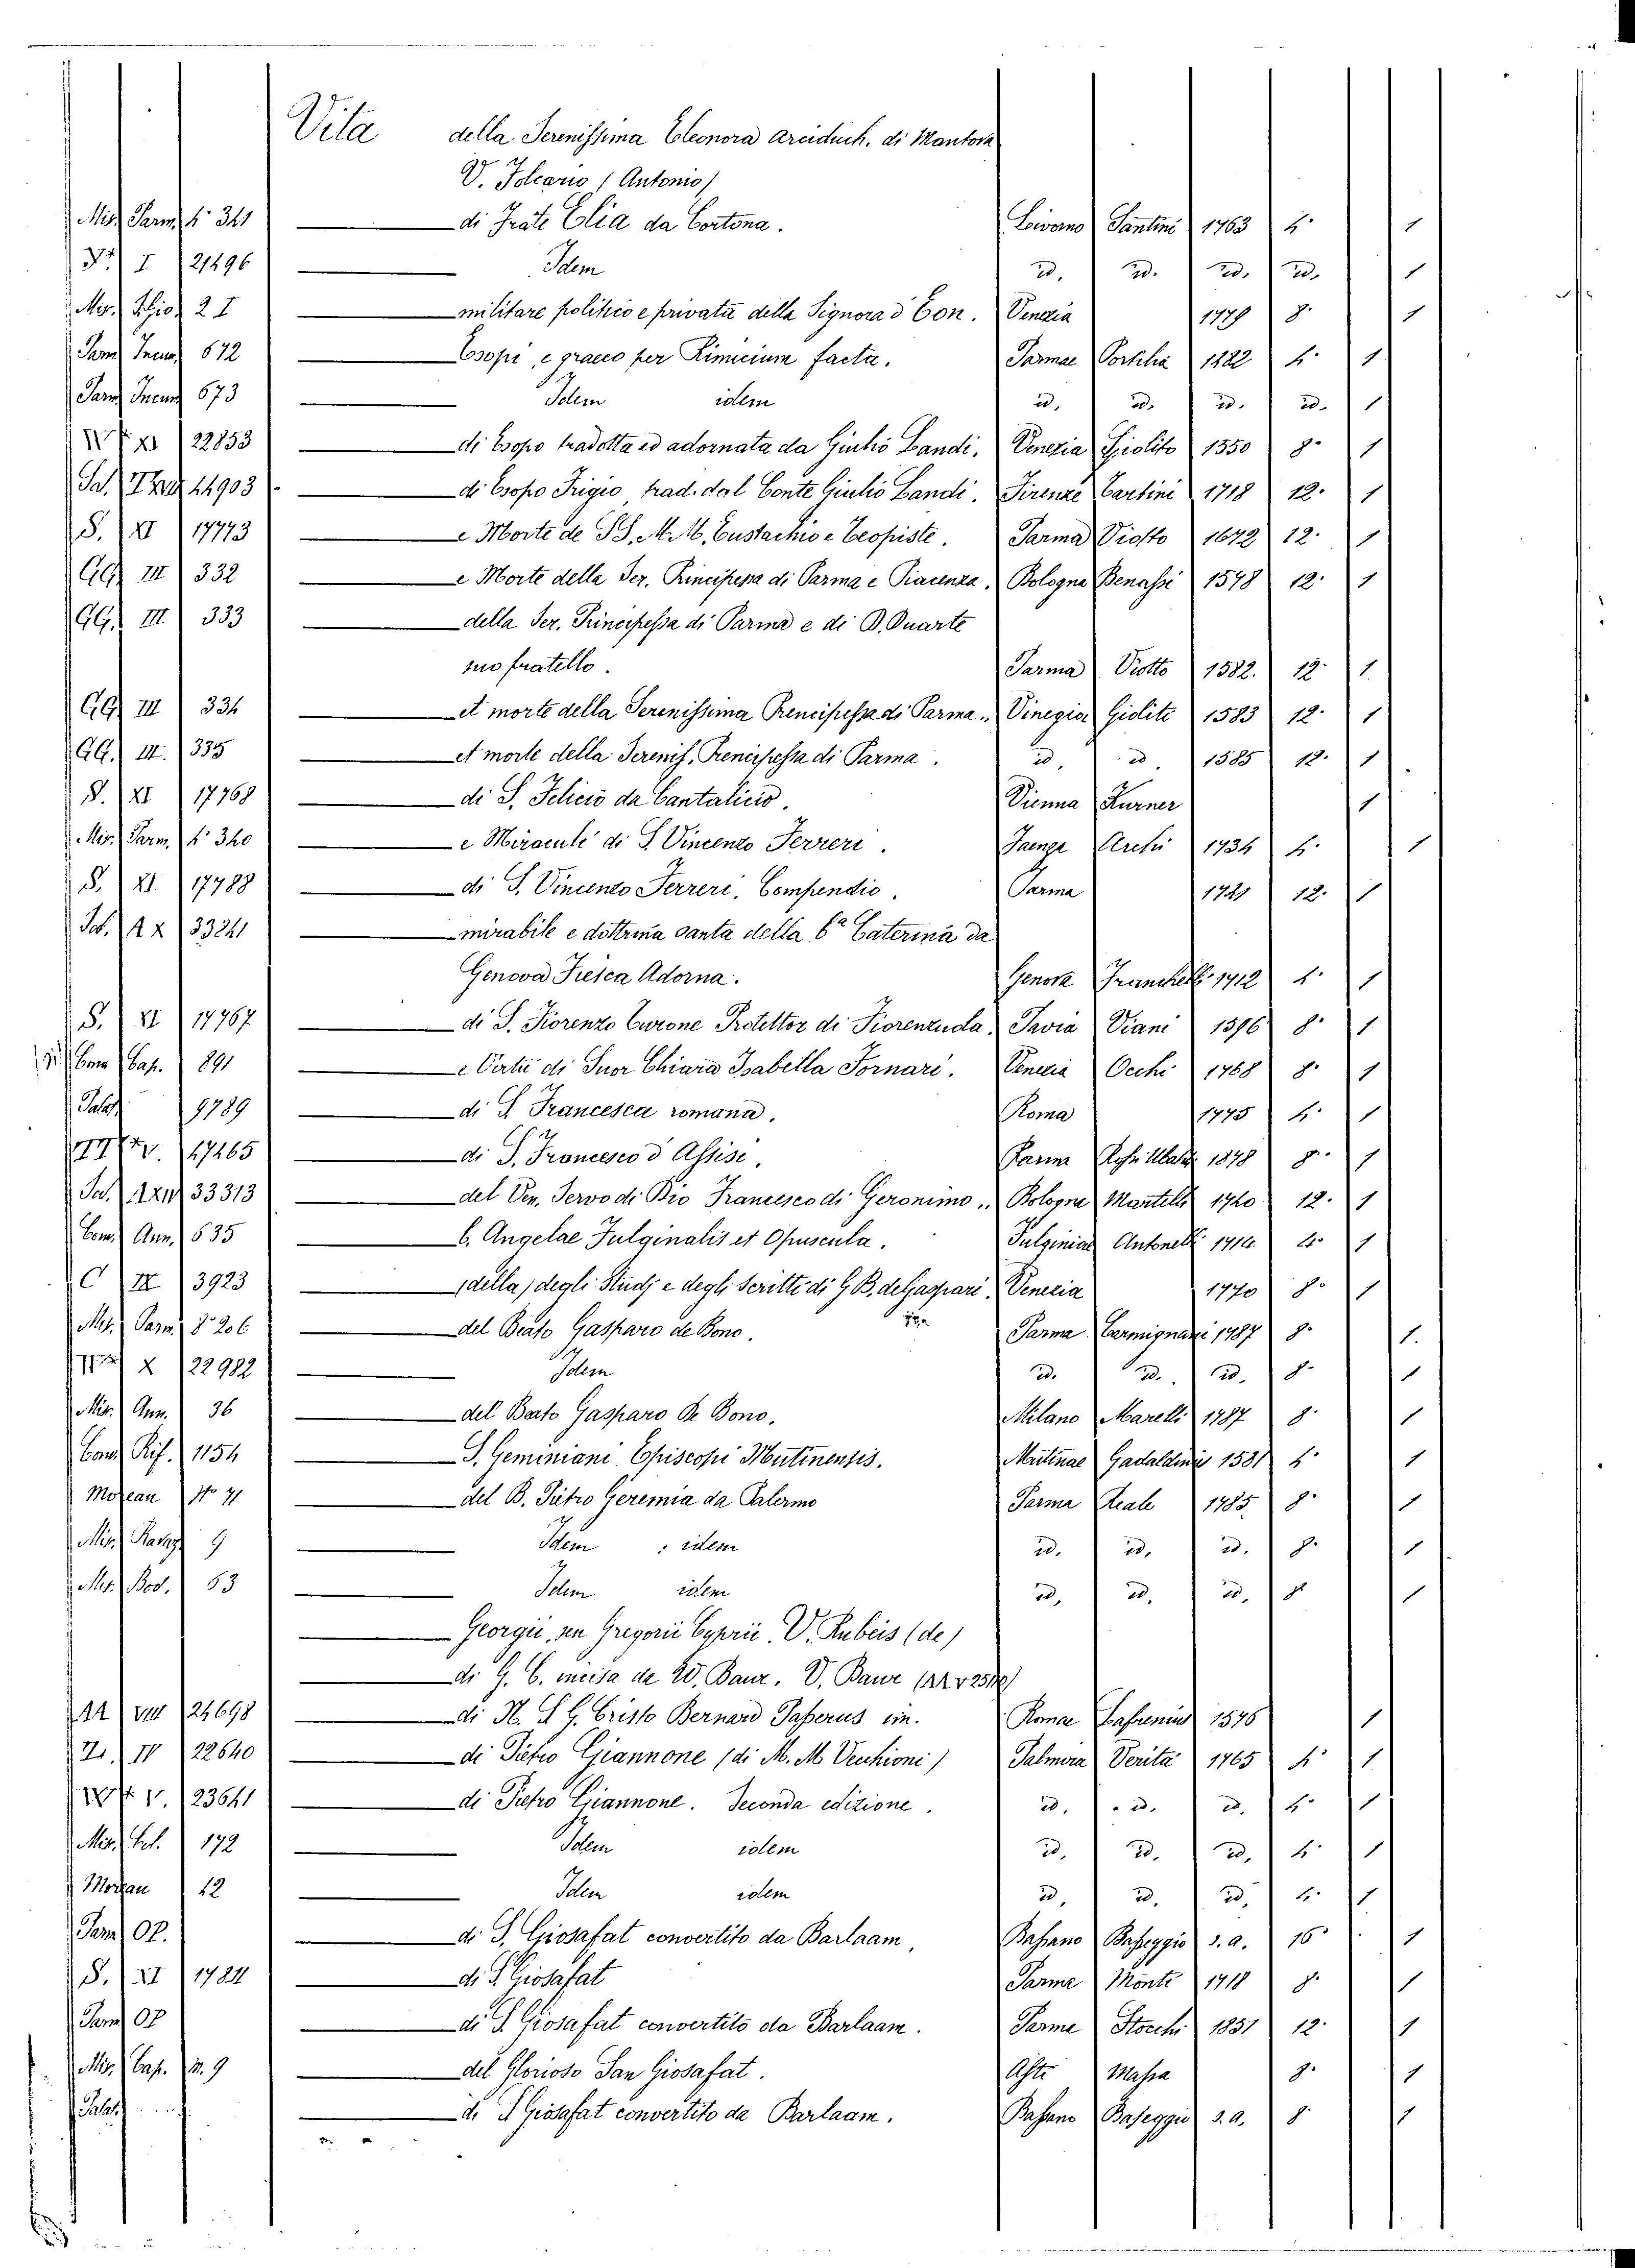 Vita della Serenissima Eleonora Arciduch. di Mantova
V. Folcario (Antonio)
Mis. Parm. 4° 341 — di Frate Elia da Cortona. Livorno Santini 1763 4° 1
I 21496 — Idem id. id. id. id. 1
2 I — militare politico e privata della Signora d'Eon. Venezia 1779 8° 1
Parm. Incun. 672 — Esopi, e graeco per Rimicium facta. Parmae Portilia 1482 4° 1
Parm. Incun. 673 — Idem idem id. id. id. id. 1
XI 22853 — di Esopo tradotta ed adornata da Giulio Landi. Venezia Giolito 1550 8° 1
Sal. 44903 — di Esopo Frigio, trad. dal Conte Giulio Landi. Firenze Cartini 1718 12° 1
S. XI 17773 — e Morte de SS. M.M. Eustachio e Teopiste. Parma Viotto 1672 12° 1
GG III 332 — e Morte della Ser. Principessa di Parma e Piacenza. Bologna Benassi 1578 12° 1
GG. III 333 — della Ser. Principessa di Parma e di D. Duarte
suo fratello. Parma Viotto 1582. 12° 1
GG III 334 — et morte della Serenissima Principessa di Parma. Vinegia Gioliti 1583 12° 1
GG. III. 335 — et morte della Sereniss. Principessa di Parma. id. id. 1585 12° 1
S. XI 17768 — di S. Felicio da Cantalicio. Vienna Kurner 1
Mis. Parm. 4° 340 — e Miracoli di S. Vincenzo Ferreri. Faenza Archi 1734 4° 1
S. XI 17788 — di S. Vincenzo Ferreri, Compendio. Parma 1721 12° 1
33241 — mirabile e dottrina santa della b.a Caterina da
Genova Fiesca Adorna. Genova Franchelli 1712 4° 1
S. XI 17767 — di S. Fiorenzo Curone Protettor di Fiorenzuola. Pavia Viani 1596 8° 1
Cap. 891 — e Virtù di Suor Chiara Isabella Fornari. Venezia Occhi 1768 8° 1
Palat. 9789 — di S. Francesca romana. Roma 1775 4° 1
17265 — di S. Francesco d'Assisi. Parma 1878 8° 1
33313 — del Ven. Servo di Dio Francesco di Geronimo. Bologna Martelli 1740 12° 1
Ann. 635 — b. Angelae Fulginatis et Opuscula. Fulginiae Antonelli 1714 4° 1
C IX 3923 — (della) degli Studj e degli Scritti di G.B. de Gaspari. Venezia 1770 8° 1
Mis. Parm. 8° 206 — del Beato Gasparo de Bono. Parma Carmignani 1787 8° 1.
X 22982 — Idem id. id. id. 8° 1
Mis. Ann. 36 — del Beato Gasparo De Bono. Milano Marelli 1787 8° 1
Rif. 1154 — S. Geminiani Episcopi Mutinensis. Mutinae Gadaldinis 1581 4° 1
Moreau N° 71 — del B. Pietro Geremia da Palermo Parma Reale 1785 8° 1
Mis. 9 — Idem : idem id. id. id. 8° 1
Mis. Bod. 63 — Idem idem id. id. id. 8° 1
— Georgii, seu Gregorii Cyprii. V. Rubeis (de)
— di G. C. incisa da Baur. V. Baur
VIII 24698 — di N. S. G. Cristo Bernard Passerus in. Romae 1576 1
IV 22640 — di Pietro Giannone (di M. M. Vecchioni) Palmira Verità 1765 4° 1
V. 23641 — di Pietro Giannone. Seconda edizione. id. id. id. 4° 1
Mis. 172 — Idem idem id. id. id. 4° 1
Moreau 12 — Idem idem id. id. id. 4° 1
Parm. OP. — di S. Giosafat convertito da Barlaam. Bassano Baseggio s.a. 16° 1
S. XI 1784 — di S. Giosafat Parma Monti 1718 8° 1
Parm. OP — di S. Giosafat convertito da Barlaam. Parma Stocchi 1831 12° 1
Mis. Cap. in. 9 — del Glorioso San Giosafat. Asti Massa 8° 1
Palat. — di S. Giosafat convertito da Barlaam. Bassano Baseggio s.a. 8° 1